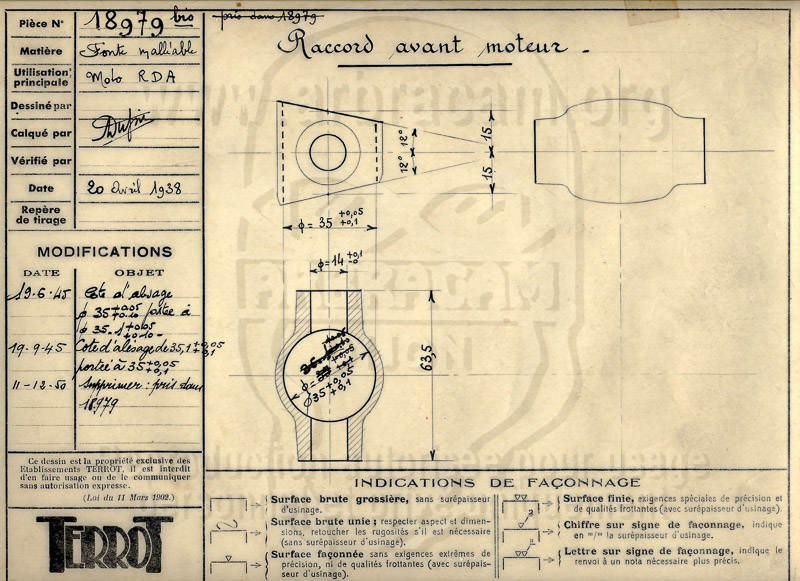 Pièce N° 18979 bis
pris dans 18979
Matière Fonte malléable
Utilisation principale Moto RDA
Dessiné par
Calqué par
Vérifié par
Date 20 Avril 1938
Repère de tirage
Raccord avant moteur -
12° 12°
15
15
ϕ = 35 +0,05 +0,1
ϕ = 14 +0,1 -0
63,5
ϕ 35 +0,05 +0,1
MODIFICATIONS
DATE OBJET
19-6-45 Cote d'alésage
ϕ 35 +0,05 +0,10 portée à
ϕ 35-1 +0,05 +0,10
19-9-45 Cote d'alésage de 35,1 +0,05 +0,1
portée à 35 +0,05 +0,1
11-12-50 Supprimer : pris dans
18979
Ce dessin est la propriété exclusive des
Etablissements TERROT, il est interdit
d'en faire usage ou de le communiquer
sans autorisation expresse.
(Loi du 11 Mars 1902.)
TERROT
INDICATIONS DE FAÇONNAGE
Surface brute grossière, sans surépaisseur
d'usinage.
Surface brute unie ; respecter aspect et dimen-
sions, retoucher les rugosités s'il est nécessaire
(sans surépaisseur d'usinage).
Surface façonnée sans exigences extrêmes de
précision, ni de qualités frottantes (avec surépais-
seur d'usinage).
Surface finie, exigences spéciales de précision et
de qualités frottantes (avec surépaisseur d'usinage).
Chiffre sur signe de façonnage, indique
en m/m la surépaisseur d'usinage.
Lettre sur signe de façonnage, indique le
renvoi à un nota nécessaire plus précis.
www.arbracam.org
ARBRACAM